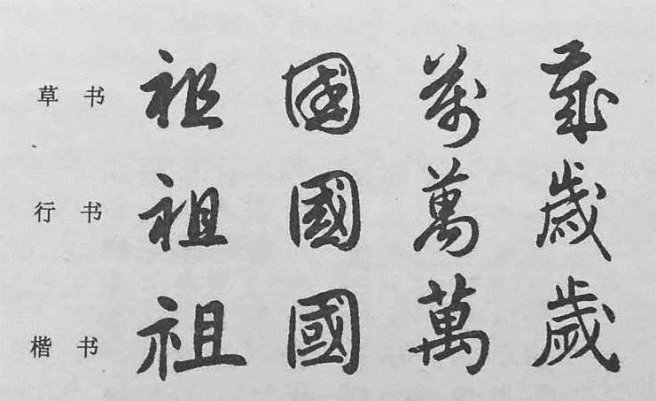 草书 祖國萬歲
行书 祖國萬歲
楷书 祖國萬歲